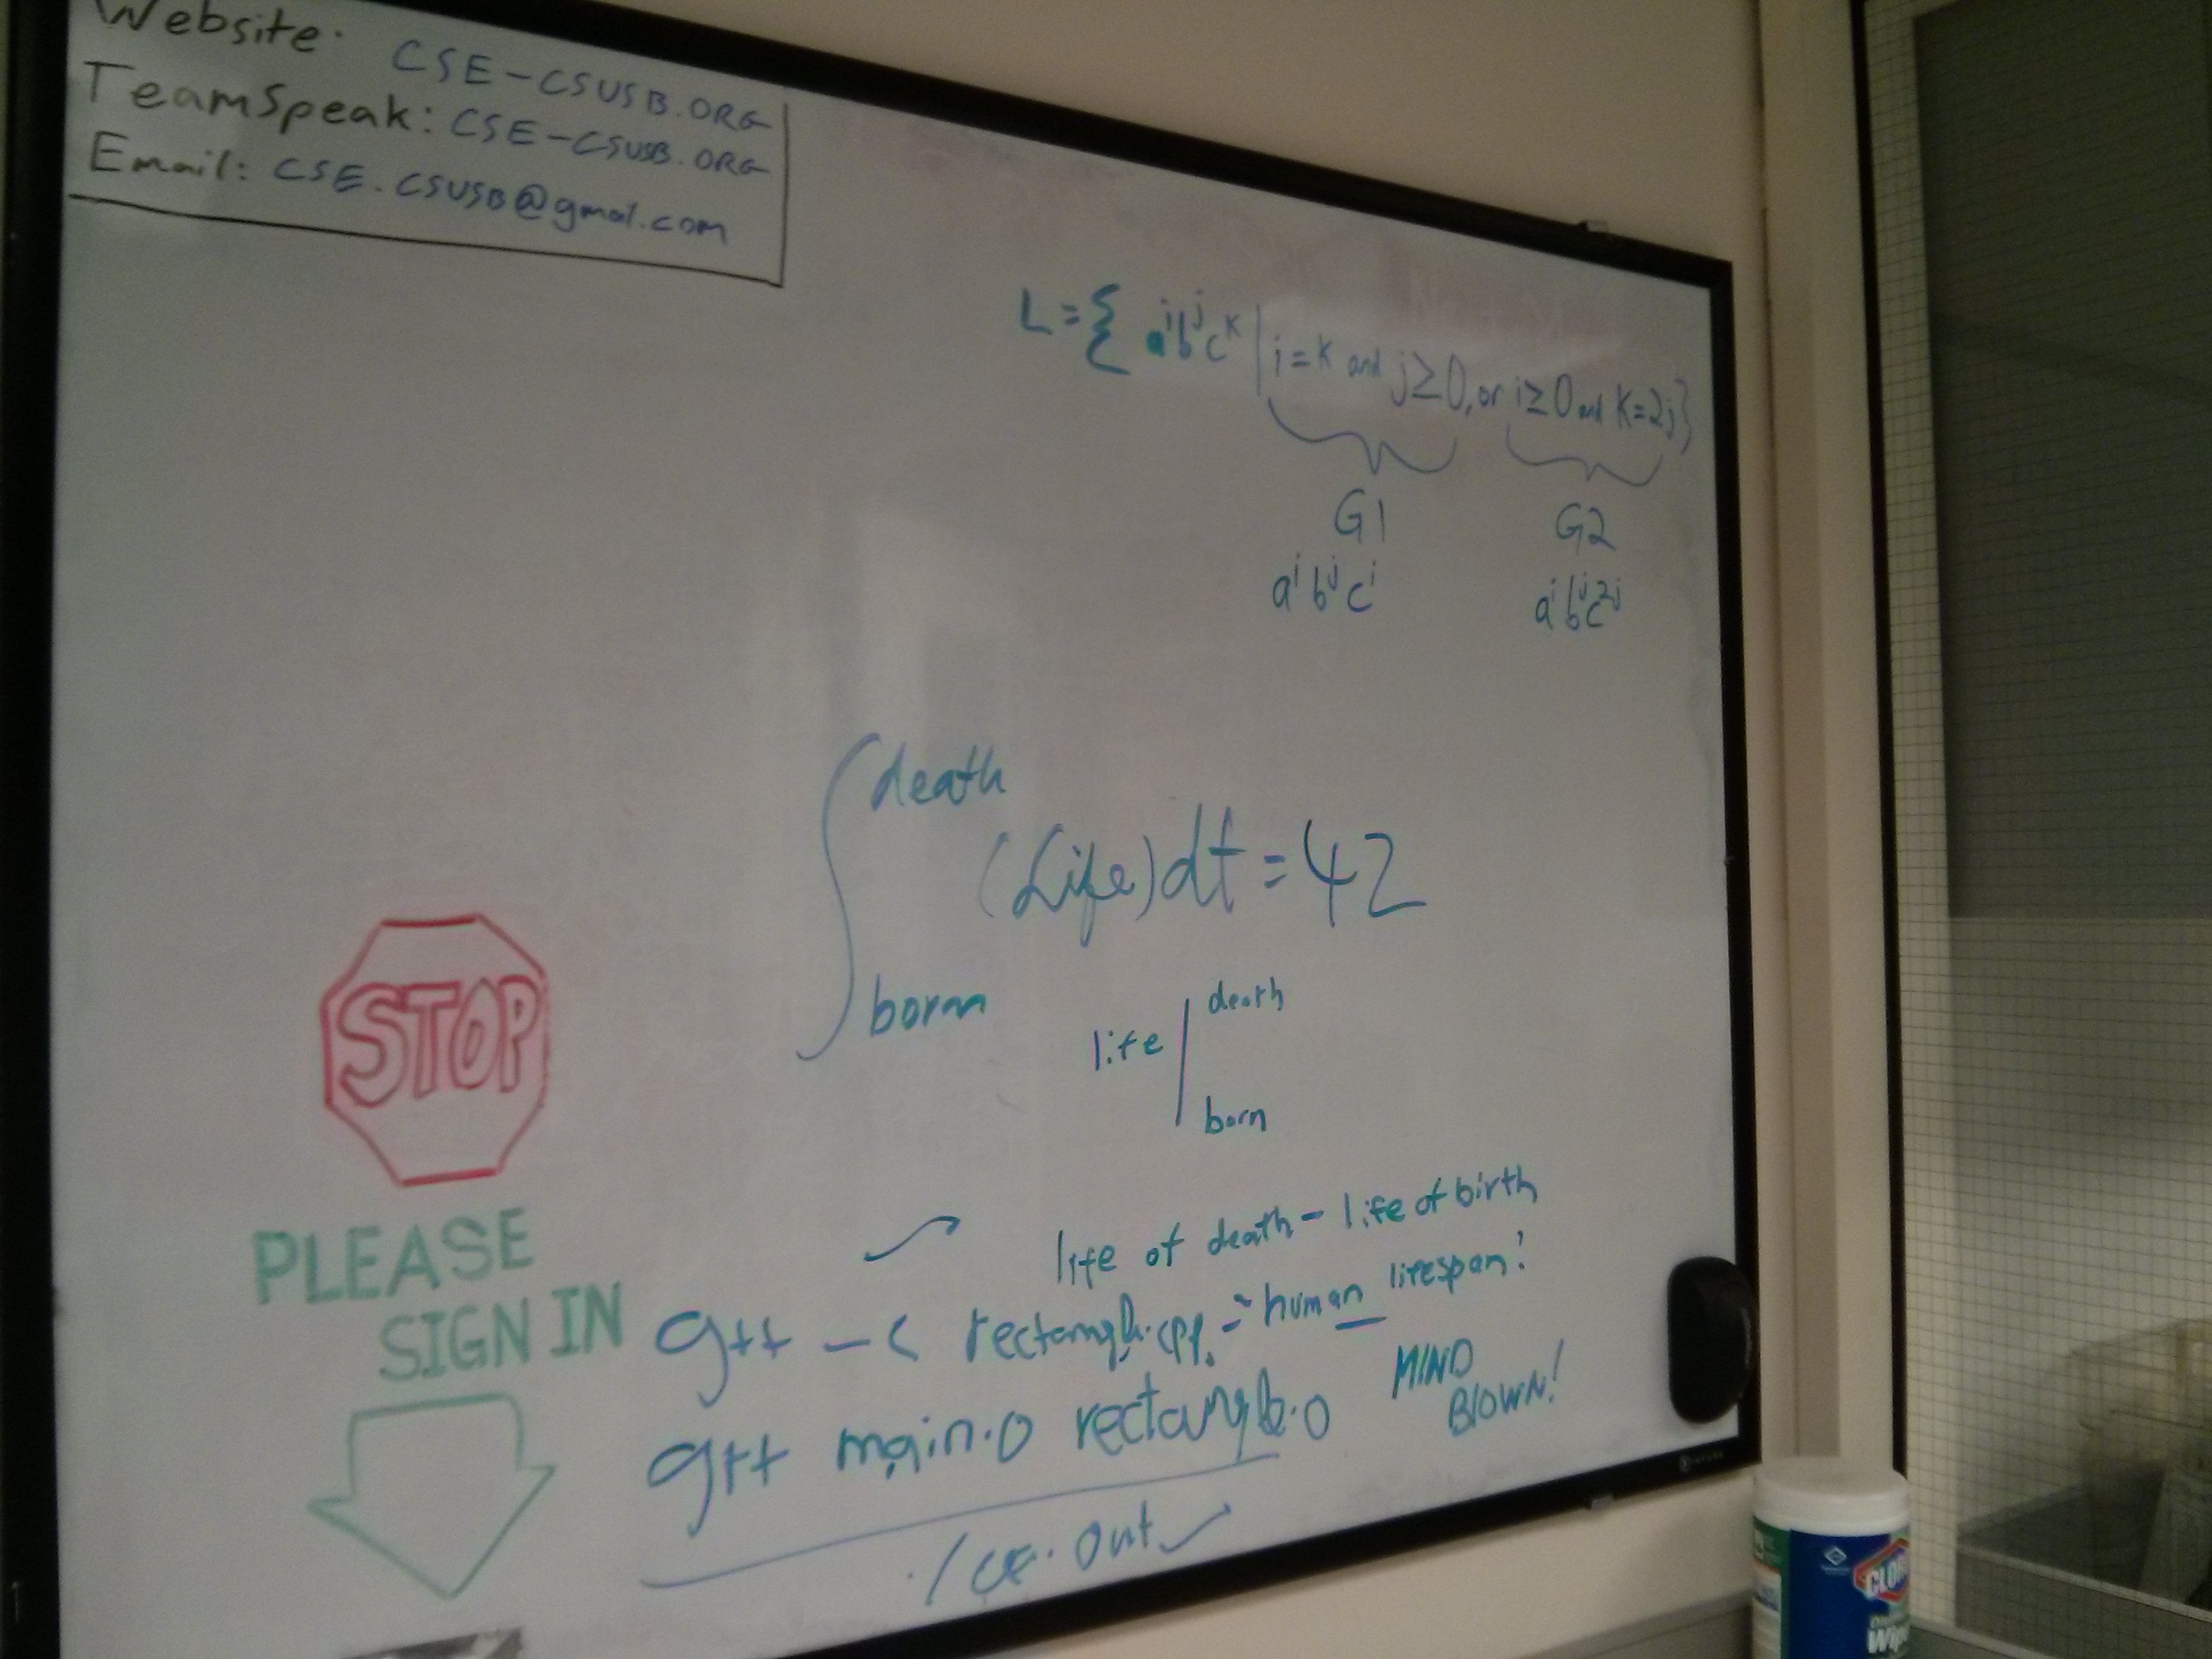 Website: CSE-CSUSB.ORG
TeamSpeak: CSE-CSUSB.ORG
Email: CSE.CSUSB@gmail.com
L = { aⁱbʲcᵏ | i=k and j≥0, or i≥0 and k=2j}
G1 G2
aⁱbʲcⁱ aⁱbʲc²ʲ
∫ death
(Life)dt = 42
born
life | death
born
life of death - life of birth
= human lifespan!
MIND
BLOWN!
STOP
PLEASE
SIGN IN
g++ -c rectangle.cpp
g++ main.o rectangle.o
./a.out
CLOR
Wip